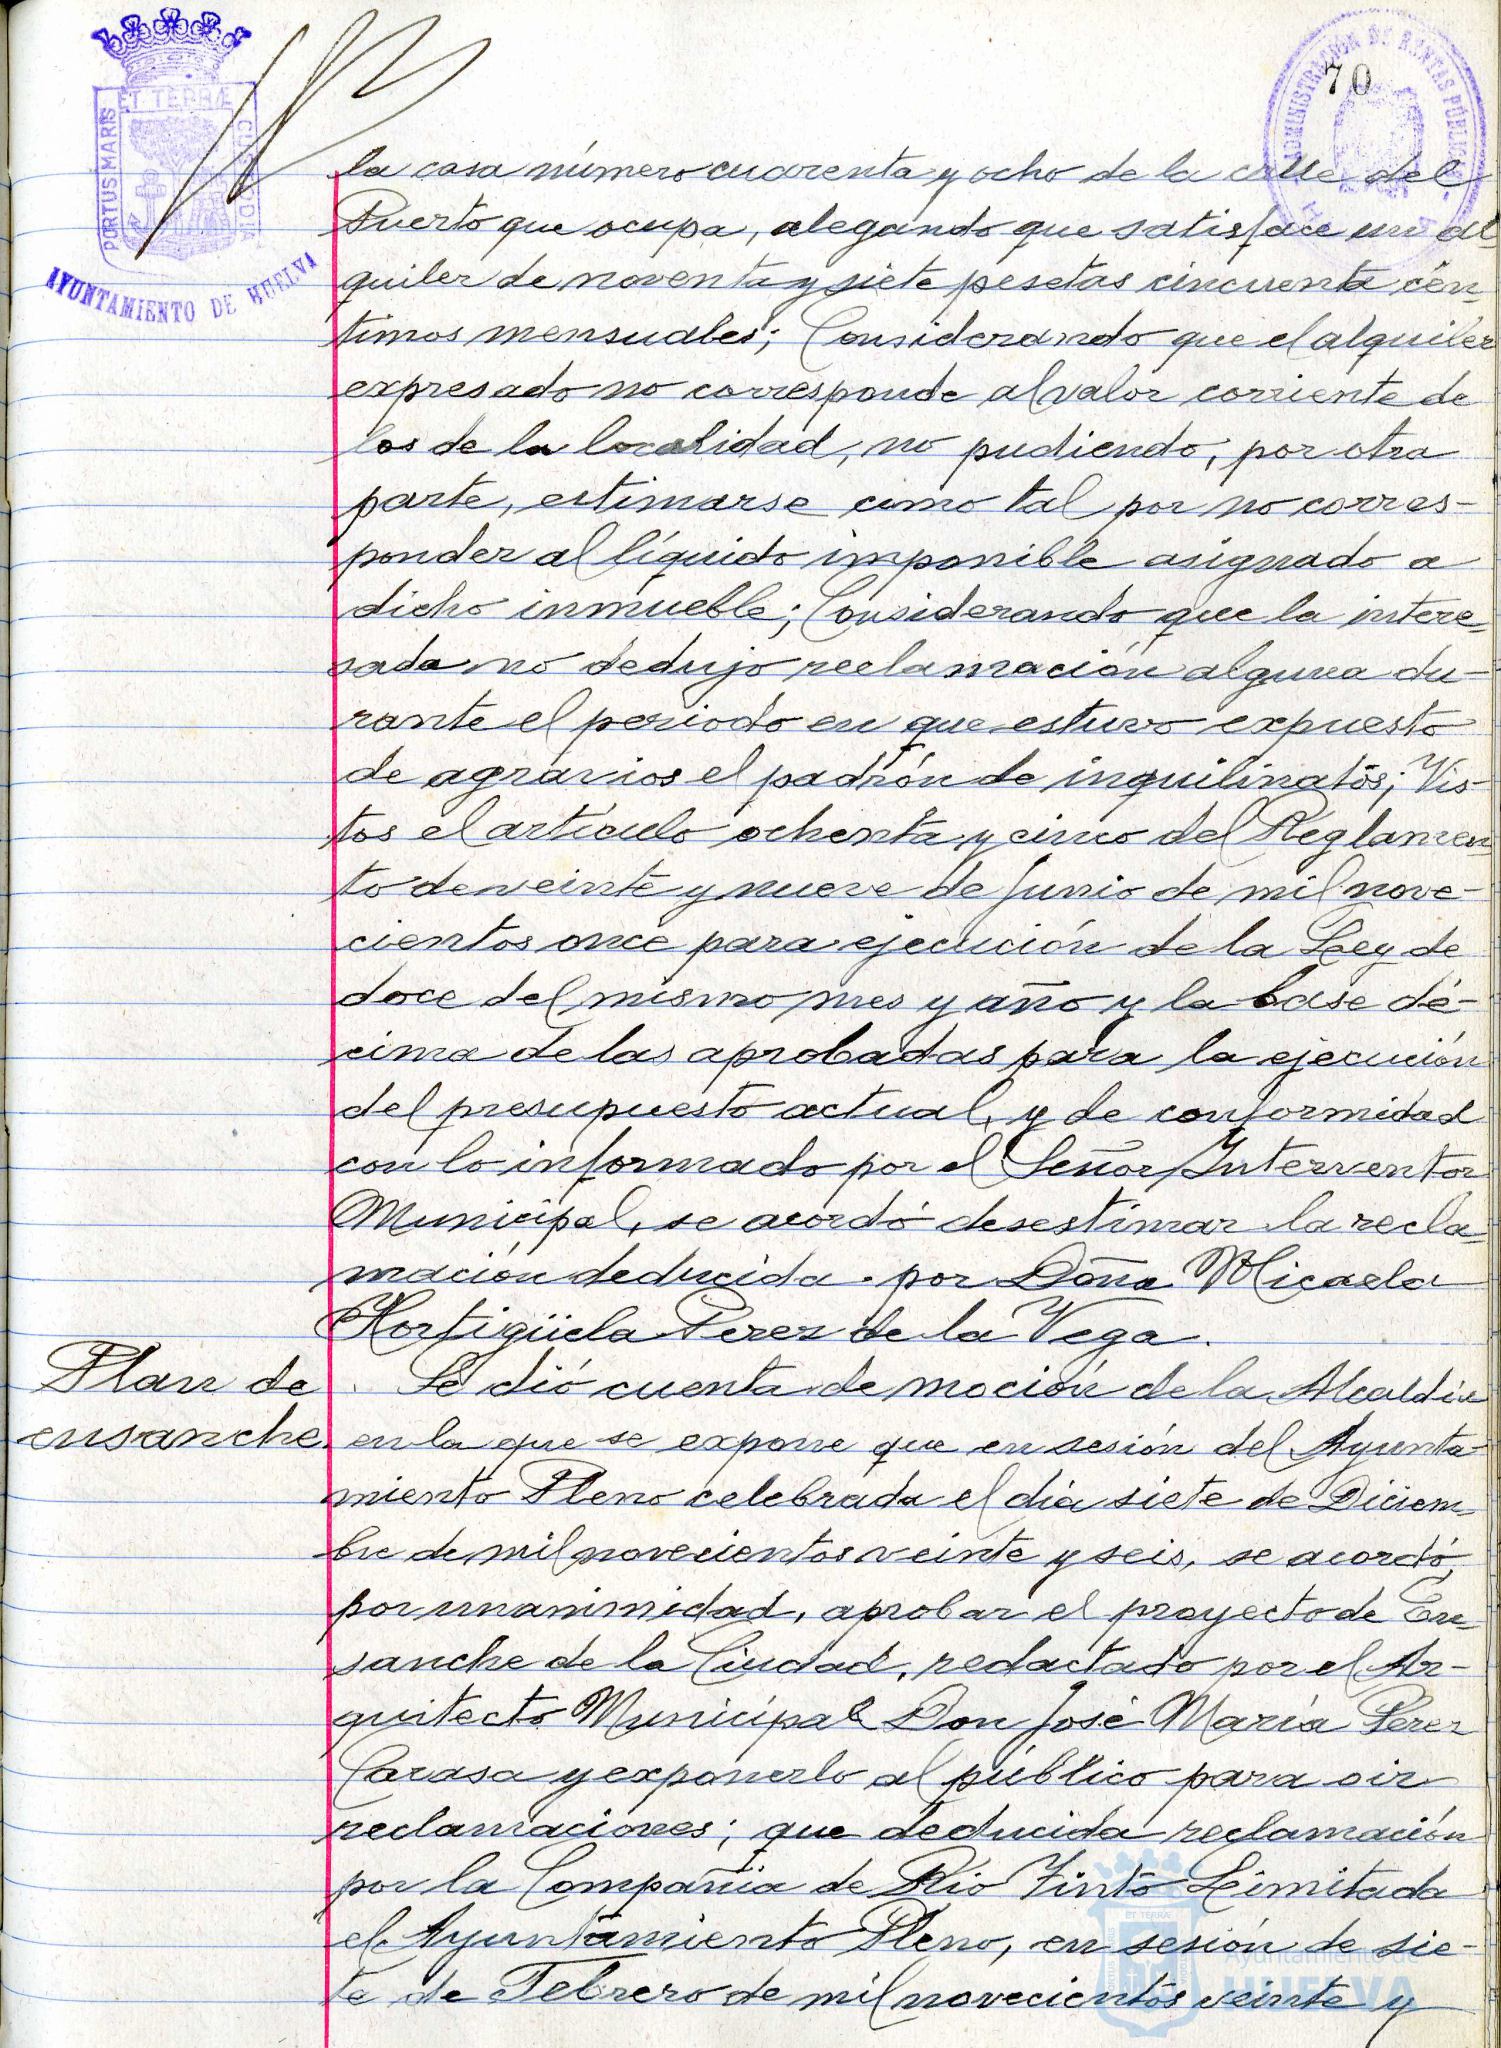 70
PORTUS MARIS
ET TERRÆ
CUSTODIA
AYUNTAMIENTO DE HUELVA
ADMINISTRACIÓN DE RENTAS PÚBLICAS
la casa número cuarenta y ocho de la calle del
Puerto que ocupa, alegando que satisface un al
quiler de noventa y siete pesetas cincuenta cén-
timos mensuales; Considerando que el alquiler
expresado no corresponde al valor corriente de
los de la localidad, no pudiendo, por otra
parte, estimarse como tal por no corres-
ponder al líquido imponible asignado a
dicho inmueble; Considerando que la intere-
sada no dedujo reclamación alguna du-
rante el periodo en que estuvo expuesto
de agravios el padrón de inquilinatos; Vis-
tos el artículo ochenta y cinco del Reglamen-
to de veinte y nueve de Junio de mil nove-
cientos once para ejecución de la Ley de
doce del mismo mes y año y la base dé-
cima de las aprobadas para la ejecución
del presupuesto actual, y de conformidad
con lo informado por el Señor Interventor
Municipal, se acordó desestimar la recla-
mación deducida por Doña Micaela
Hortigüela Perez de la Vega.
Plan de
ensanche.
Se dió cuenta de moción de la Alcaldía
en la que se expone que en sesión del Ayunta-
miento Pleno celebrada el día siete de Diciem-
bre de mil novecientos veinte y seis, se acordó,
por unanimidad, aprobar el proyecto de En-
sanche de la Ciudad, redactado por el Ar-
quitecto Municipal Don José María Perez
Carasa y exponerlo al público para oir
reclamaciones; que deducida reclamación
por la Compañía de Río Tinto Limitada
el Ayuntamiento Pleno, en sesión de sie-
te de Febrero de mil novecientos veinte y
Ayuntamiento de
HUELVA